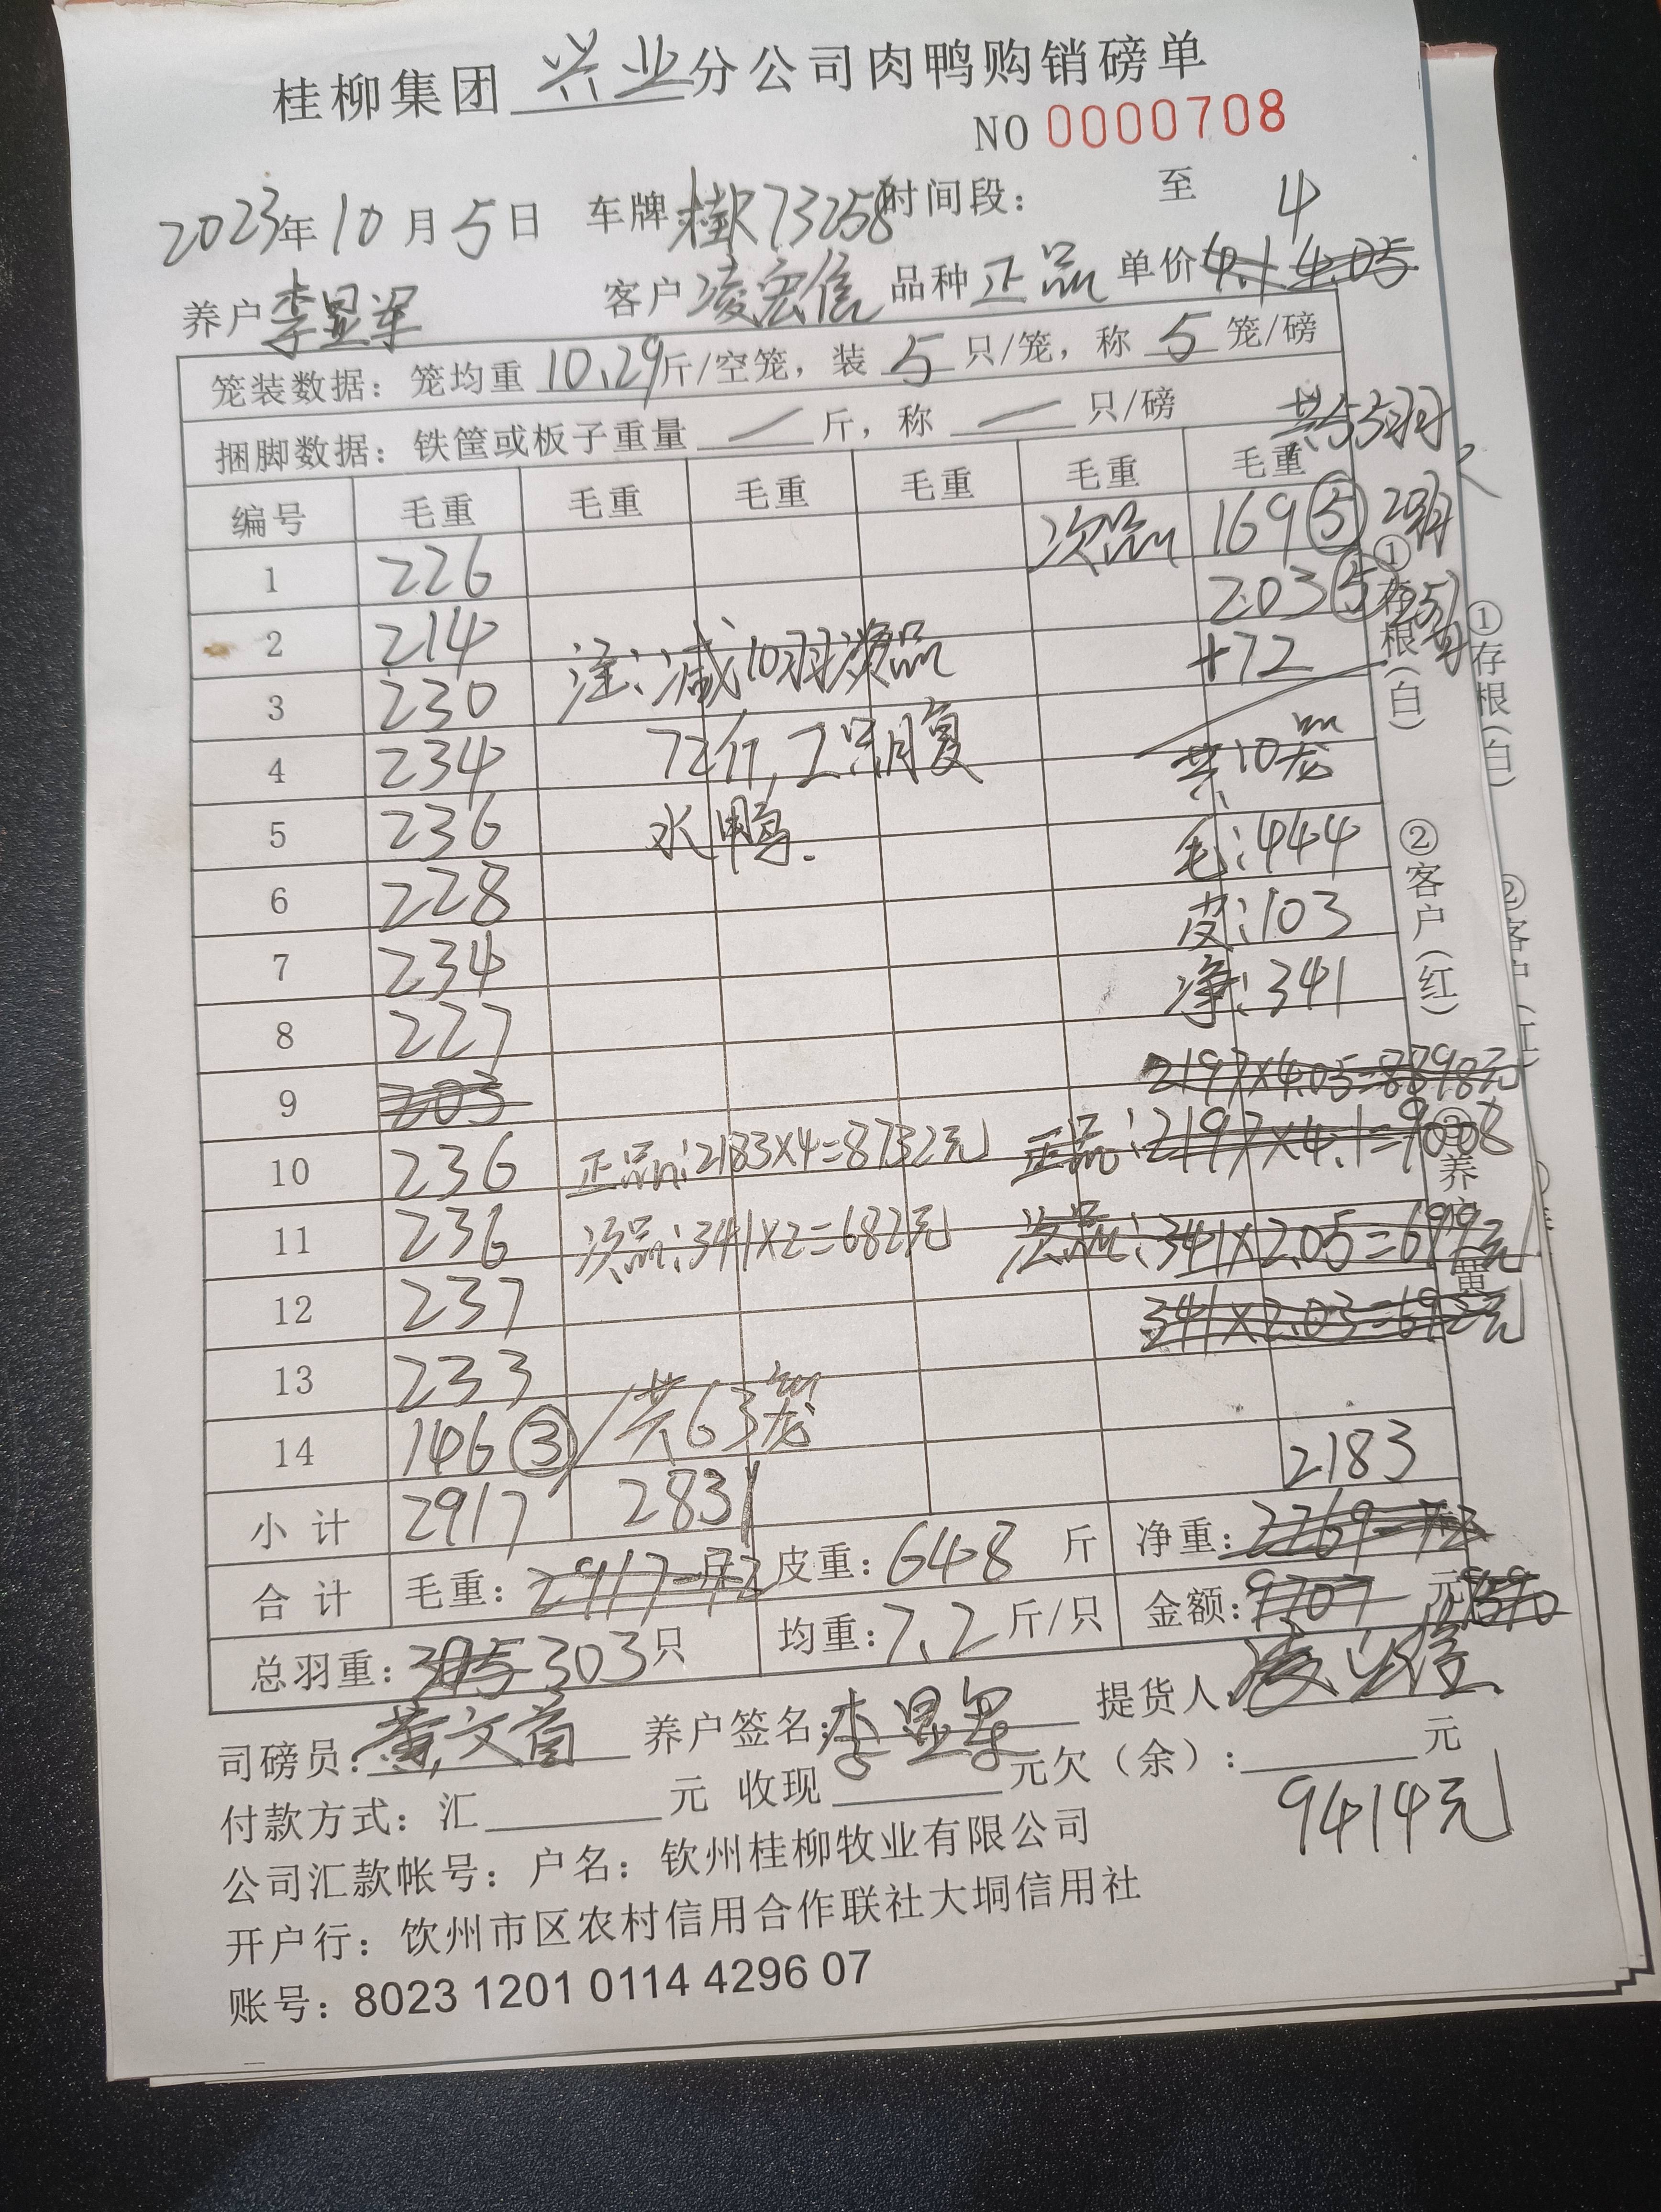 桂柳集团 兴业 分公司肉鸭购销磅单
NO 0000708
2023年10月5日 车牌:桂R73258 时间段: 至
4
养户 李显军 客户 凌宏信 品种 正品 单价 4.1 4.05
笼装数据: 笼均重 10.29 斤/空笼, 装 5 只/笼, 称 5 笼/磅
捆脚数据: 铁筐或板子重量 — 斤, 称 — 只/磅 共55羽
编号 毛重 毛重 毛重 毛重 毛重 毛重
1 226 次品 169 ⑤
2 214 203 ⑤ 25羽
3 230 注:减10羽次品 +72
4 234 72斤,2只腹 共10笼
5 236 水鸭. 毛:444
6 228 皮:103
7 234 净:341
8 227
9 203 2197×4.05=8898元
10 236 正品:2183×4=8732元 正品:2197×4.1=9008
11 236 次品:341×2=682元 次品:341×2.05=699元
12 237 341×2.03=692元
13 233
14 146 ③ 共63笼 2183
小计 2917 2831
合计 毛重: 2917-72 皮重: 648 斤 净重: 2269-72
总羽重: 303只 均重: 7.2 斤/只 金额: 9707 元
司磅员: 黄文首 养户签名: 李显军 提货人
付款方式: 汇 元 收现 元 欠(余): 元
9414元
公司汇款帐号: 户名: 钦州桂柳牧业有限公司
开户行: 钦州市区农村信用合作联社大垌信用社
账号: 8023 1201 0114 4296 07
①存根(白)
②客户(红)
①存根(白)